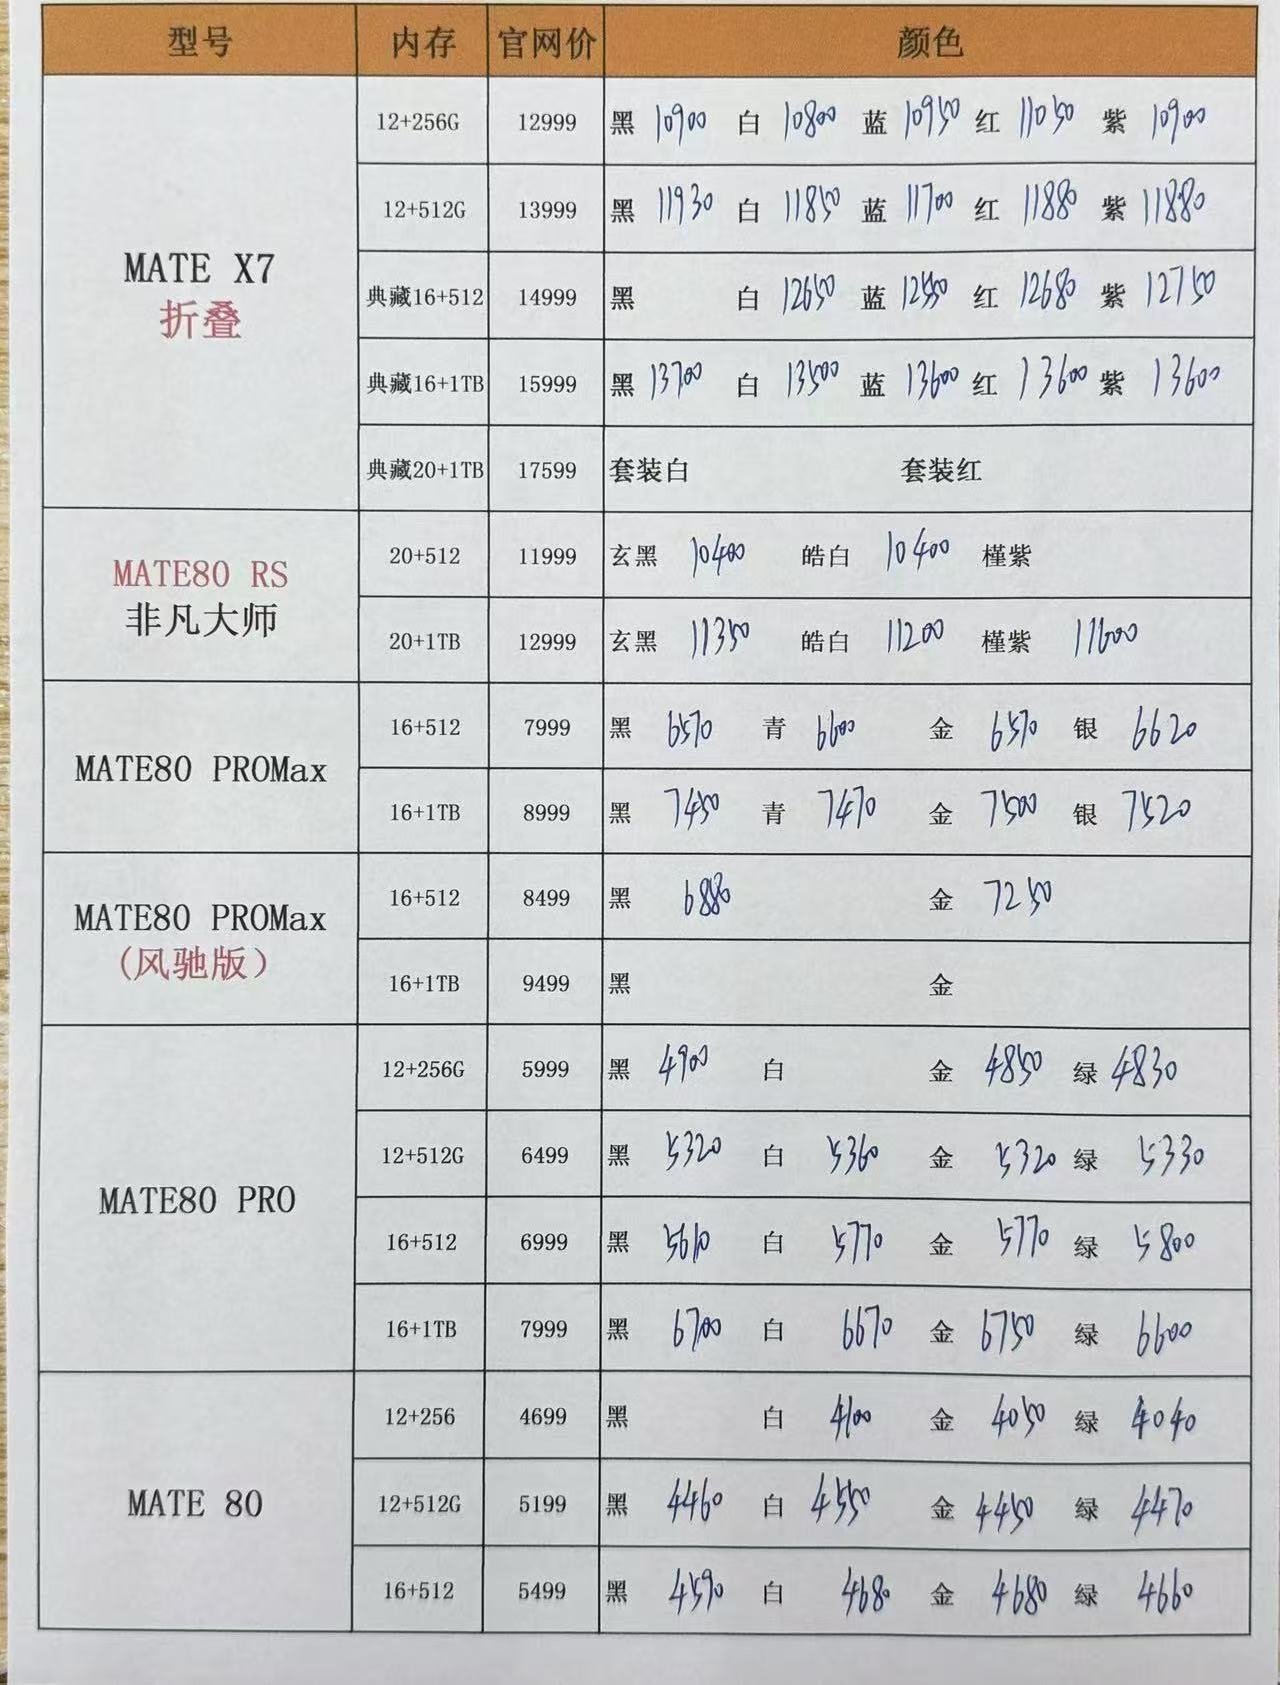 型号 内存 官网价 颜色
12+256G 12999 黑 10900 白 10800 蓝 10950 红 11050 紫 10900
12+512G 13999 黑 11930 白 11850 蓝 11700 红 11880 紫 11880
MATE X7
折叠
典藏16+512 14999 黑 白 12650 蓝 12550 红 12680 紫 12750
典藏16+1TB 15999 黑 13700 白 13500 蓝 13600 红 13600 紫 13600
典藏20+1TB 17599 套装白 套装红
MATE80 RS
非凡大师
20+512 11999 玄黑 10400 皓白 10400 槿紫
20+1TB 12999 玄黑 11350 皓白 11200 槿紫 11600
MATE80 PROMax
16+512 7999 黑 6570 青 6600 金 6570 银 6620
16+1TB 8999 黑 7450 青 7470 金 7500 银 7520
MATE80 PROMax
(风驰版)
16+512 8499 黑 6880 金 7250
16+1TB 9499 黑 金
MATE80 PRO
12+256G 5999 黑 4900 白 金 4850 绿 4830
12+512G 6499 黑 5320 白 5360 金 5320 绿 5330
16+512 6999 黑 5610 白 5770 金 5770 绿 5800
16+1TB 7999 黑 6700 白 6670 金 6750 绿 6600
MATE 80
12+256 4699 黑 白 4100 金 4050 绿 4040
12+512G 5199 黑 4460 白 4550 金 4450 绿 4470
16+512 5499 黑 4590 白 4680 金 4680 绿 4660